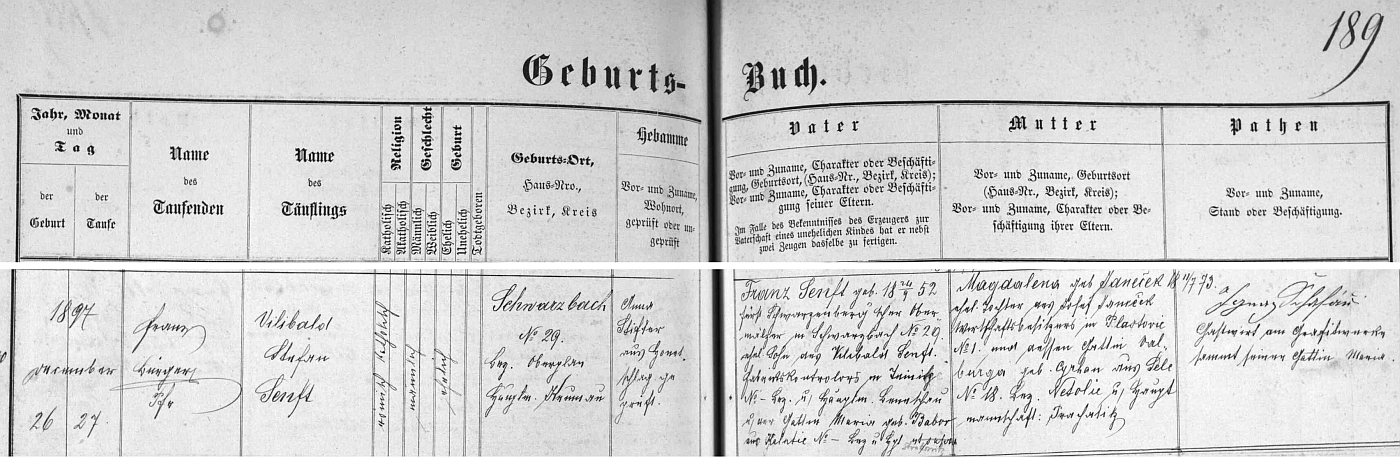 189
Geburts- Buch.
Jahr, Monat
und
Tag
der
Geburt
der
Taufe
Name
des
Taufenden
Name
des
Täuflings
Religion
Katholisch
Akatholisch
Geschlecht
Männlich
Weiblich
Geburt
Ehelich
Unehelich
Todtgeboren
Geburts-Ort,
Haus-Nro.,
Bezirk, Kreis
Hebamme
Vor- und Zuname,
Wohnort,
geprüft oder un-
geprüft
Vater
Vor- und Zuname, Charakter oder Beschäfti-
gung, Geburtsort, (Haus-Nr., Bezirk, Kreis);
Vor- und Zuname, Charakter oder Beschäfti-
gung seiner Eltern.
Im Falle des Bekenntnisses des Erzeugers zur
Vaterschaft eines unehelichen Kindes hat er nebst
zwei Zeugen dasselbe zu fertigen.
Mutter
Vor- und Zuname, Geburtsort
(Haus-Nr., Bezirk, Kreis);
Vor- und Zuname, Charakter oder Be-
schäftigung ihrer Eltern.
Pathen
Vor- und Zuname,
Stand oder Beschäftigung.
1897
December
26 27
Franz
Bürger
Vilibald
Stefan
Senft
römisch katholisch
männl
ehelich
Schwarzbach
No 29.
Bez. Oberplan
Hauptm. Krumau
Anna
Stifter
aus Honet-
schlag ge
prüft.
Franz Senft geb. 18 24/9 52
fürst Schwarzenberg'scher Ober-
in Schwarzbach No 29.
ehel. Sohn des Vilibald Senft.
in
No – Bez. u/ Hauptm.
u/ der Gattin Maria geb. Babor
aus No – Bez u
Magdalena geb Janeček 18 73.
ehel. Tochter des Josef Janeček
Wirthschaftsbesitzers in Plastovic
No 1. und dessen Gattin Val-
burga geb. Cyrhan aus
No 18. Bez. Netolic u/ Haupt
mannschaft: Prachatitz
Ignaz
Gastwirt am Grafitwerke
sammt seiner Gattin Maria